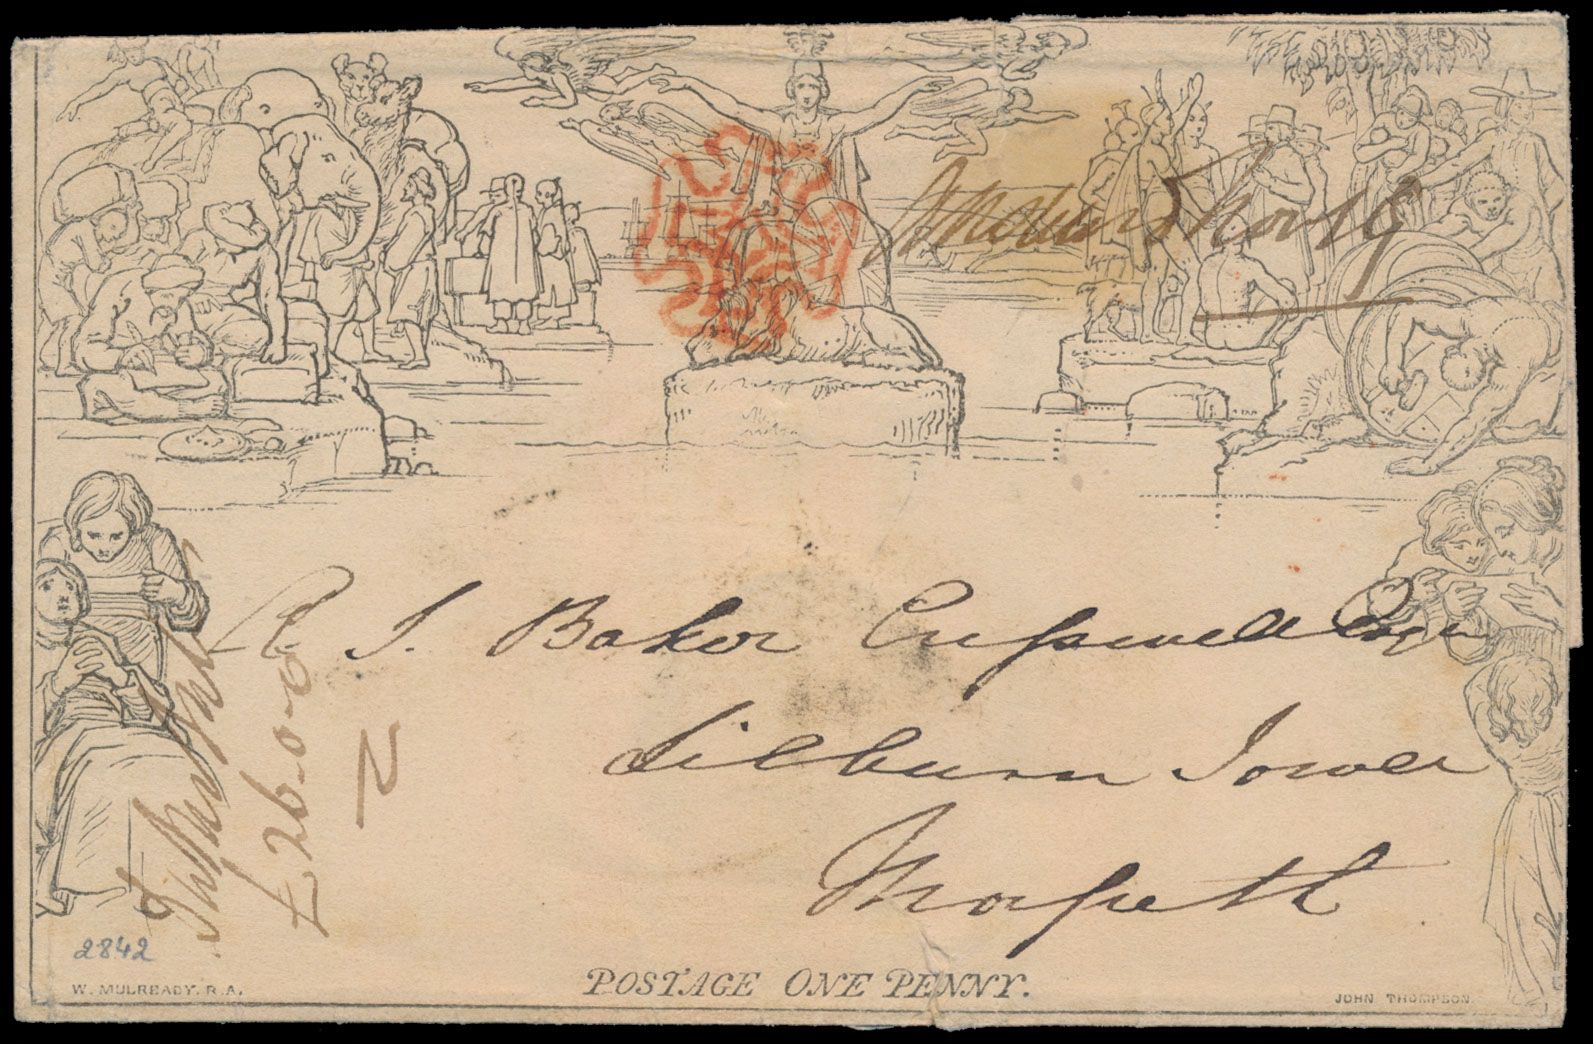 A. J. Baker Cresswell Esqr
Lilburn Tower
Morpeth
£26-0-0
N
2842
W. MULREADY. R.A.
POSTAGE ONE PENNY.
JOHN THOMPSON.